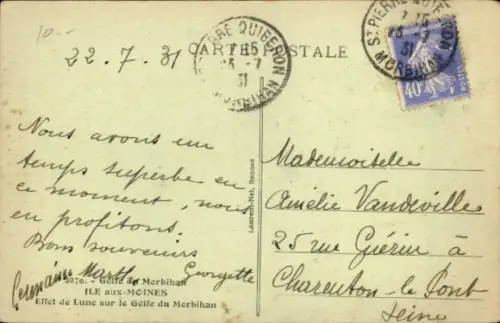 10.-
22.7.31
CARTE POSTALE
ST PIERRE QUIBERON
7 15
23 -7
31
MORBIHAN
ST PIERRE QUIBERON
7 15
23 -7
31
MORBIHAN
40
Nous avons un
temps superbe en
ce moment, nous
en profitons.
Bons souvenirs
Georgette
Germaine Marth
Laurent-Nel, Rennes
Mademoiselle
Amélie Vandeville
25 rue Guérin à
Charenton-le Pont
Seine
- Golfe du Morbihan
ILE aux-MOINES
Effet de Lune sur le Golfe du Morbihan